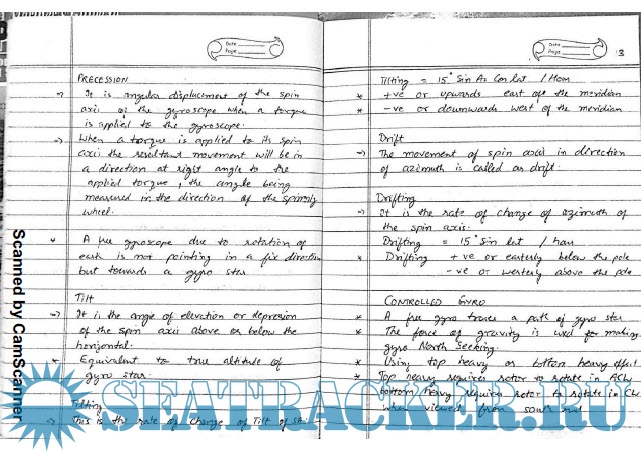 Date
Page
PRECESSION
→ It is angular displacement of the spin
axis of the gyroscope when a torque
is applied to the gyroscope.
→ When a torque is applied to its spin
axis the resultant movement will be in
a direction at right angle to the
applied torque, the angle being
measured in the direction of the spinning
wheel.
* A free gyroscope due to rotation of
earth is not pointing in a fix direction
but towards a gyro star
Tilt
→ It is the angle of elevation or depression
of the spin axis above or below the
horizontal.
* Equivalent to true altitude of
gyro star.
Tilting
→ This is the rate of change of Tilt of
Date
Page
3
Tilting = 15° Sin Az Cos lat / Hour
* +ve or upwards east of the meridian
* -ve or downwards west of the meridian
Drift
→ The movement of spin axis in direction
of azimuth is called as drift.
Drifting
→ It is the rate of change of azimuth of
the spin axis.
Drifting = 15° Sin lat / hour
* Drifting +ve or easterly below the pole
-ve or westerly above the pole
CONTROLLED GYRO
* A free gyro traces a path of gyro star
* The force of gravity is used for making
gyro North Seeking.
* Using top heavy or bottom heavy effect
* Top heavy requires rotor to rotate in ACW
bottom heavy requires rotor to rotate in CW
when viewed from south end
Scanned by CamScanner
SEATRACKER.RU